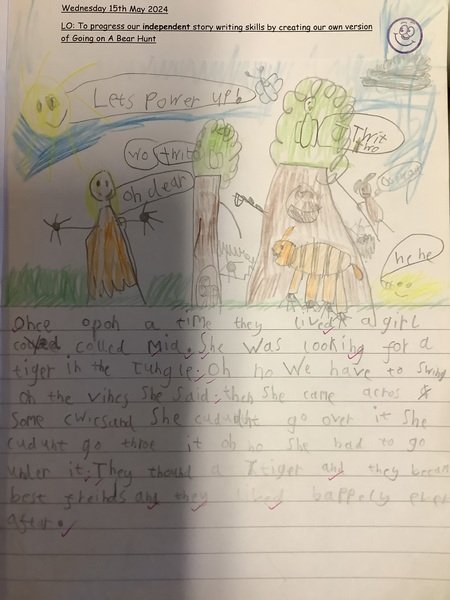 Wednesday 15th May 2024
LO: To progress our independent story writing skills by creating our own version
of Going on A Bear Hunt
Lets power up!
wo thrit
oh dear
Thrit
wo
he he
Once opoh a time they lived a girl
colled Mia. She was looking for a
tiger in the Jungle. Oh no We have to swing
on the vines She said. then She came acros
Some cwicsand She cududht go over it She
cudunt go throe it oh no She had to go
under it. They thound a tiger and they becam
best freinds and they lived happely ever
after.